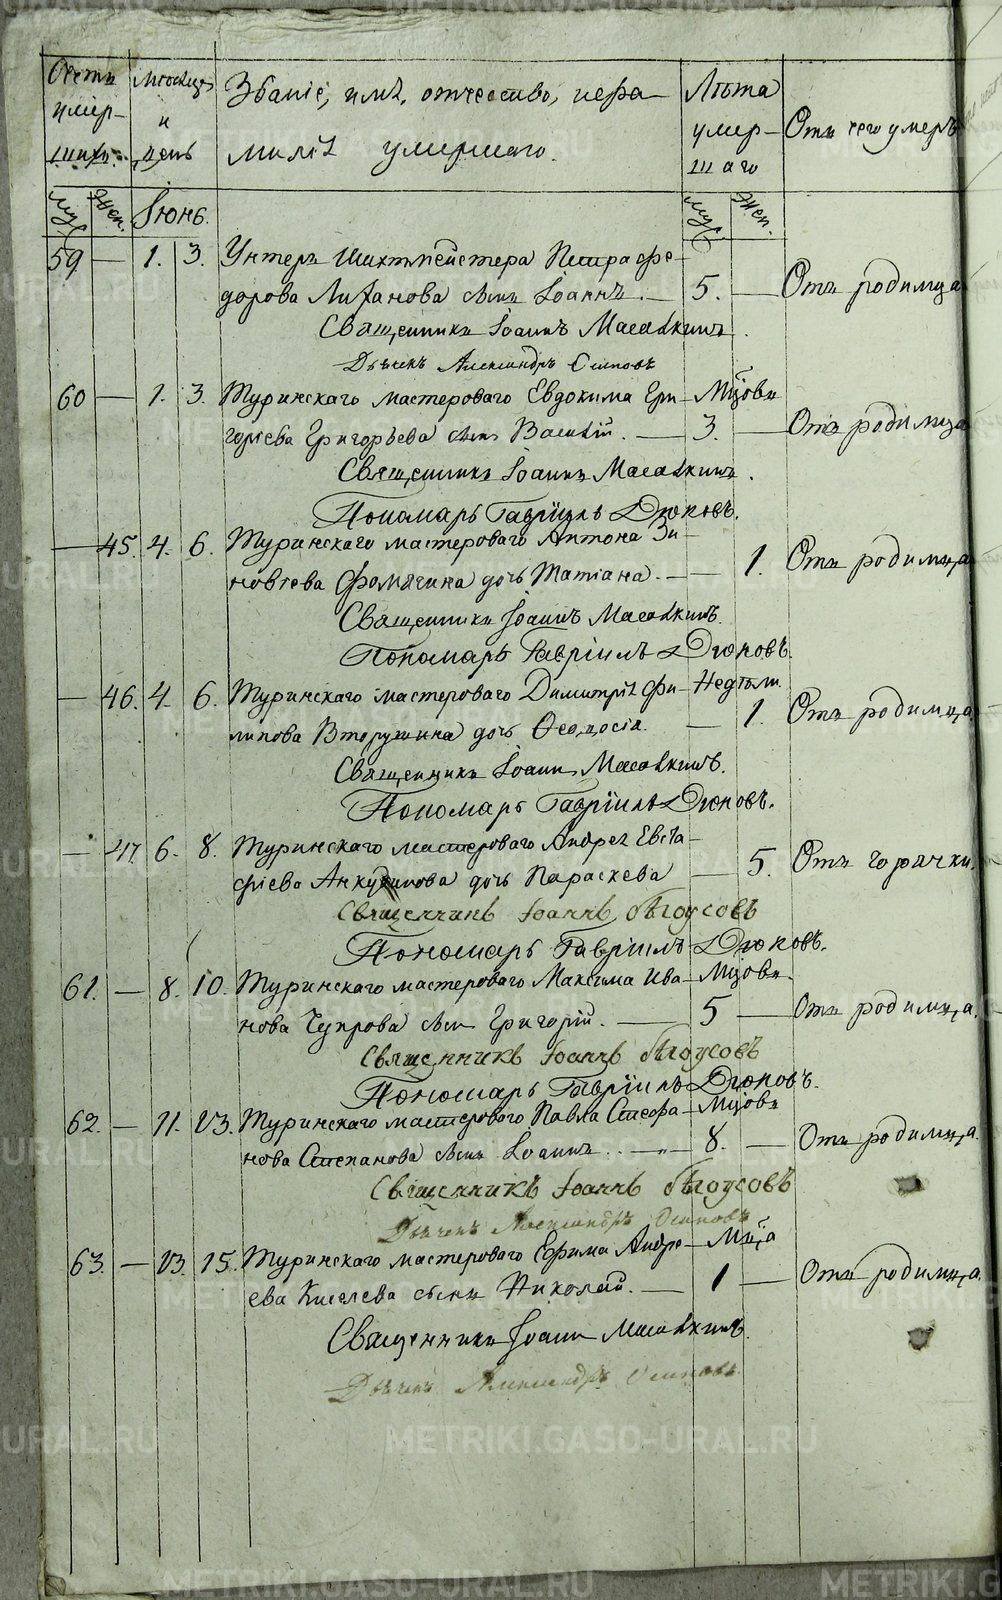 Счетъ умер- шихъ. Месяцъ и день Званіе, имя, отчество, и фа- Лѣта умер- шаго Отъ чего умеръ
милія умершаго.
Муж. Жен. Іюнь. Муж. Жен.
59 — 1. 3. Унтеръ Шихтмейстера Петра Фе-
дорова Лиханова сынъ Іоаннъ. — 5. — Отъ родимца
Священникъ Іоаннъ
Дьячекъ Александръ Осиповъ
60 — 1. 3. Туринскаго мастероваго Евдокима Гри- Мцовъ
горіева Григорьева сынъ Василій. — 3. — Отъ родимца
Священникъ Іоаннъ
Пономарь Гавріилъ Дюковъ.
— 45. 4. 6. Туринскаго мастероваго Антона Зи-
новіева Фомягина дочь Татіана. — 1. Отъ родимца
Священникъ Іоаннъ
Пономарь Гавріилъ Дюковъ.
— 46. 4. 6. Туринскаго мастероваго Димитрія Фи- Недѣли.
липова Вторушина дочь Ѳеодосія. — 1. Отъ родимца
Священникъ Іоаннъ
Пономарь Гавріилъ Дюковъ.
— 47 6. 8. Туринскаго мастероваго Андрея Евста-
фіева дочь Параскева — 5. Отъ горячки.
Священникъ Іоаннъ
Пономарь Гавріилъ Дюковъ.
61. — 8. 10. Туринскаго мастероваго Максима Ива- Мцовъ.
нова Чупрова сынъ Григорій. — 5 — Отъ родимца.
Священникъ Іоаннъ
Пономарь Гавріилъ Дюковъ.
62. — 11. 13. Туринскаго мастероваго Павла Стефа- Мцовъ
нова Степанова сынъ Іоаннъ. — 8. — Отъ родимца.
Священникъ Іоаннъ
Дьячекъ Александръ Осиповъ
63. — 13. 15. Туринскаго мастероваго Ефима Андре- Мца
ева Киселева сынъ Николай. — 1 — Отъ родимца.
Священникъ Іоаннъ
Дьячекъ Александръ Осиповъ
METRIKI.GASO-URAL.RU